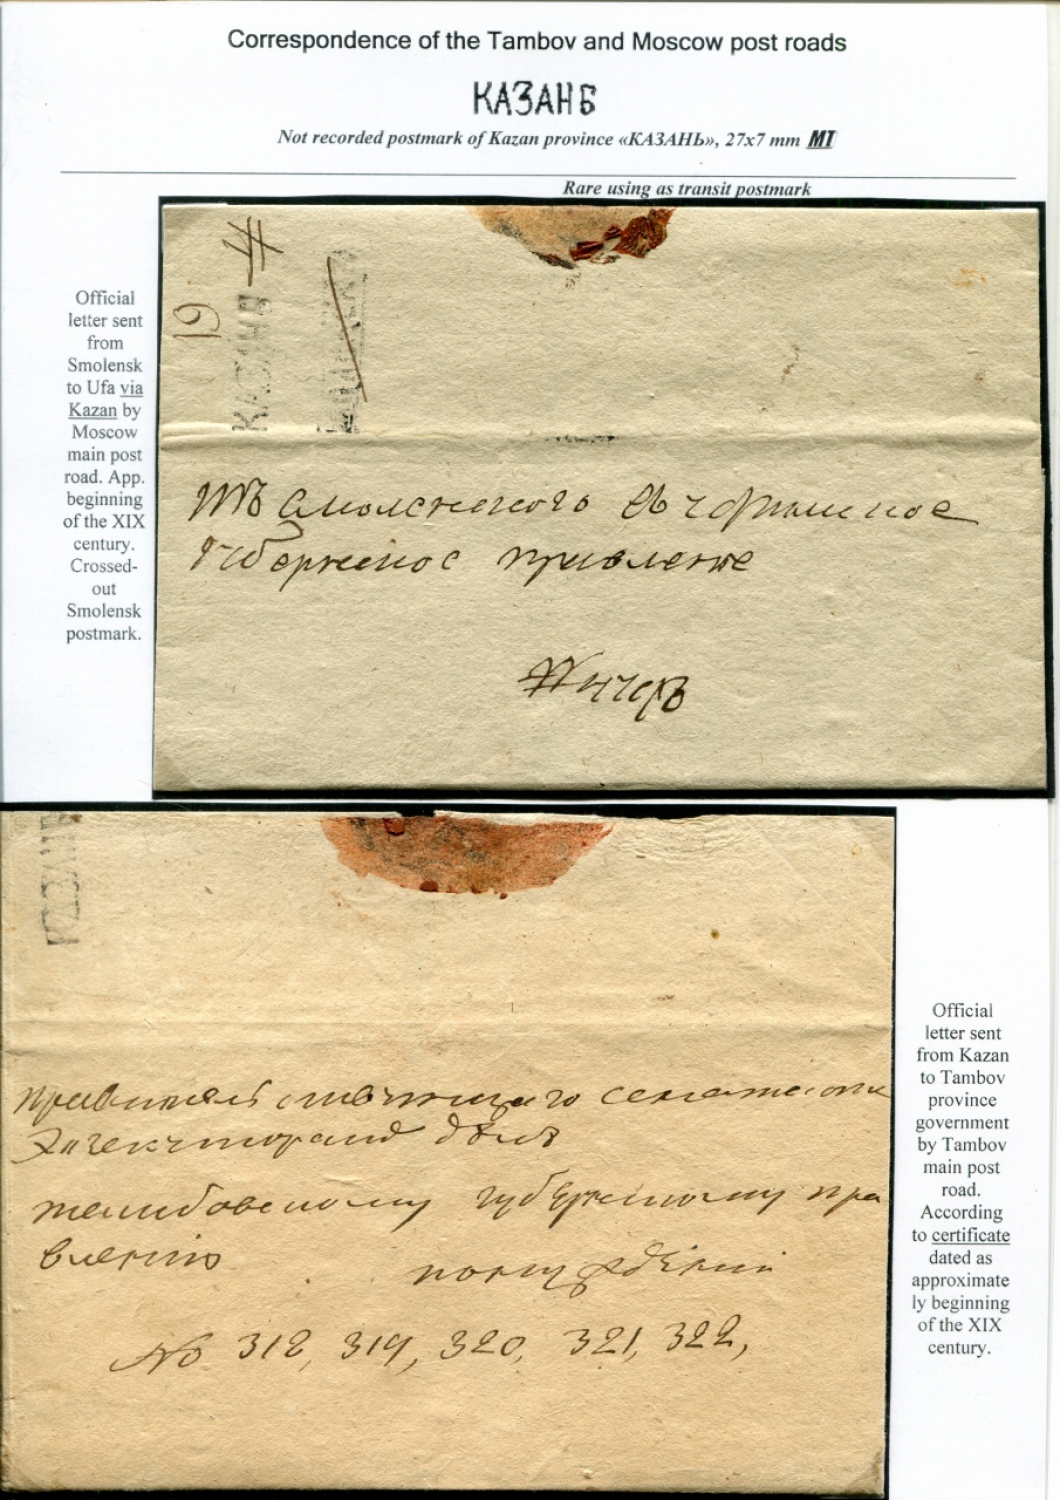 Correspondence of the Tambov and Moscow post roads
КАЗАНЬ
Not recorded postmark of Kazan province «КАЗАНЬ», 27x7 mm МТ
Rare using as transit postmark
Official
letter sent
from
Smolensk
to Ufa via
Kazan by
Moscow
main post
road. App.
beginning
of the XIX
century.
Crossed-
out
Smolensk
postmark.
19
КАЗАНЬ
Смоленского въ Уфимское
Губернское правление
КАЗАНЬ
правительствующаго
дѣла
тамбовскому губернскому пра
влению
No 318, 319, 320, 321, 322,
Official
letter sent
from Kazan
to Tambov
province
government
by Tambov
main post
road.
According
to certificate
dated as
approximate
ly beginning
of the XIX
century.